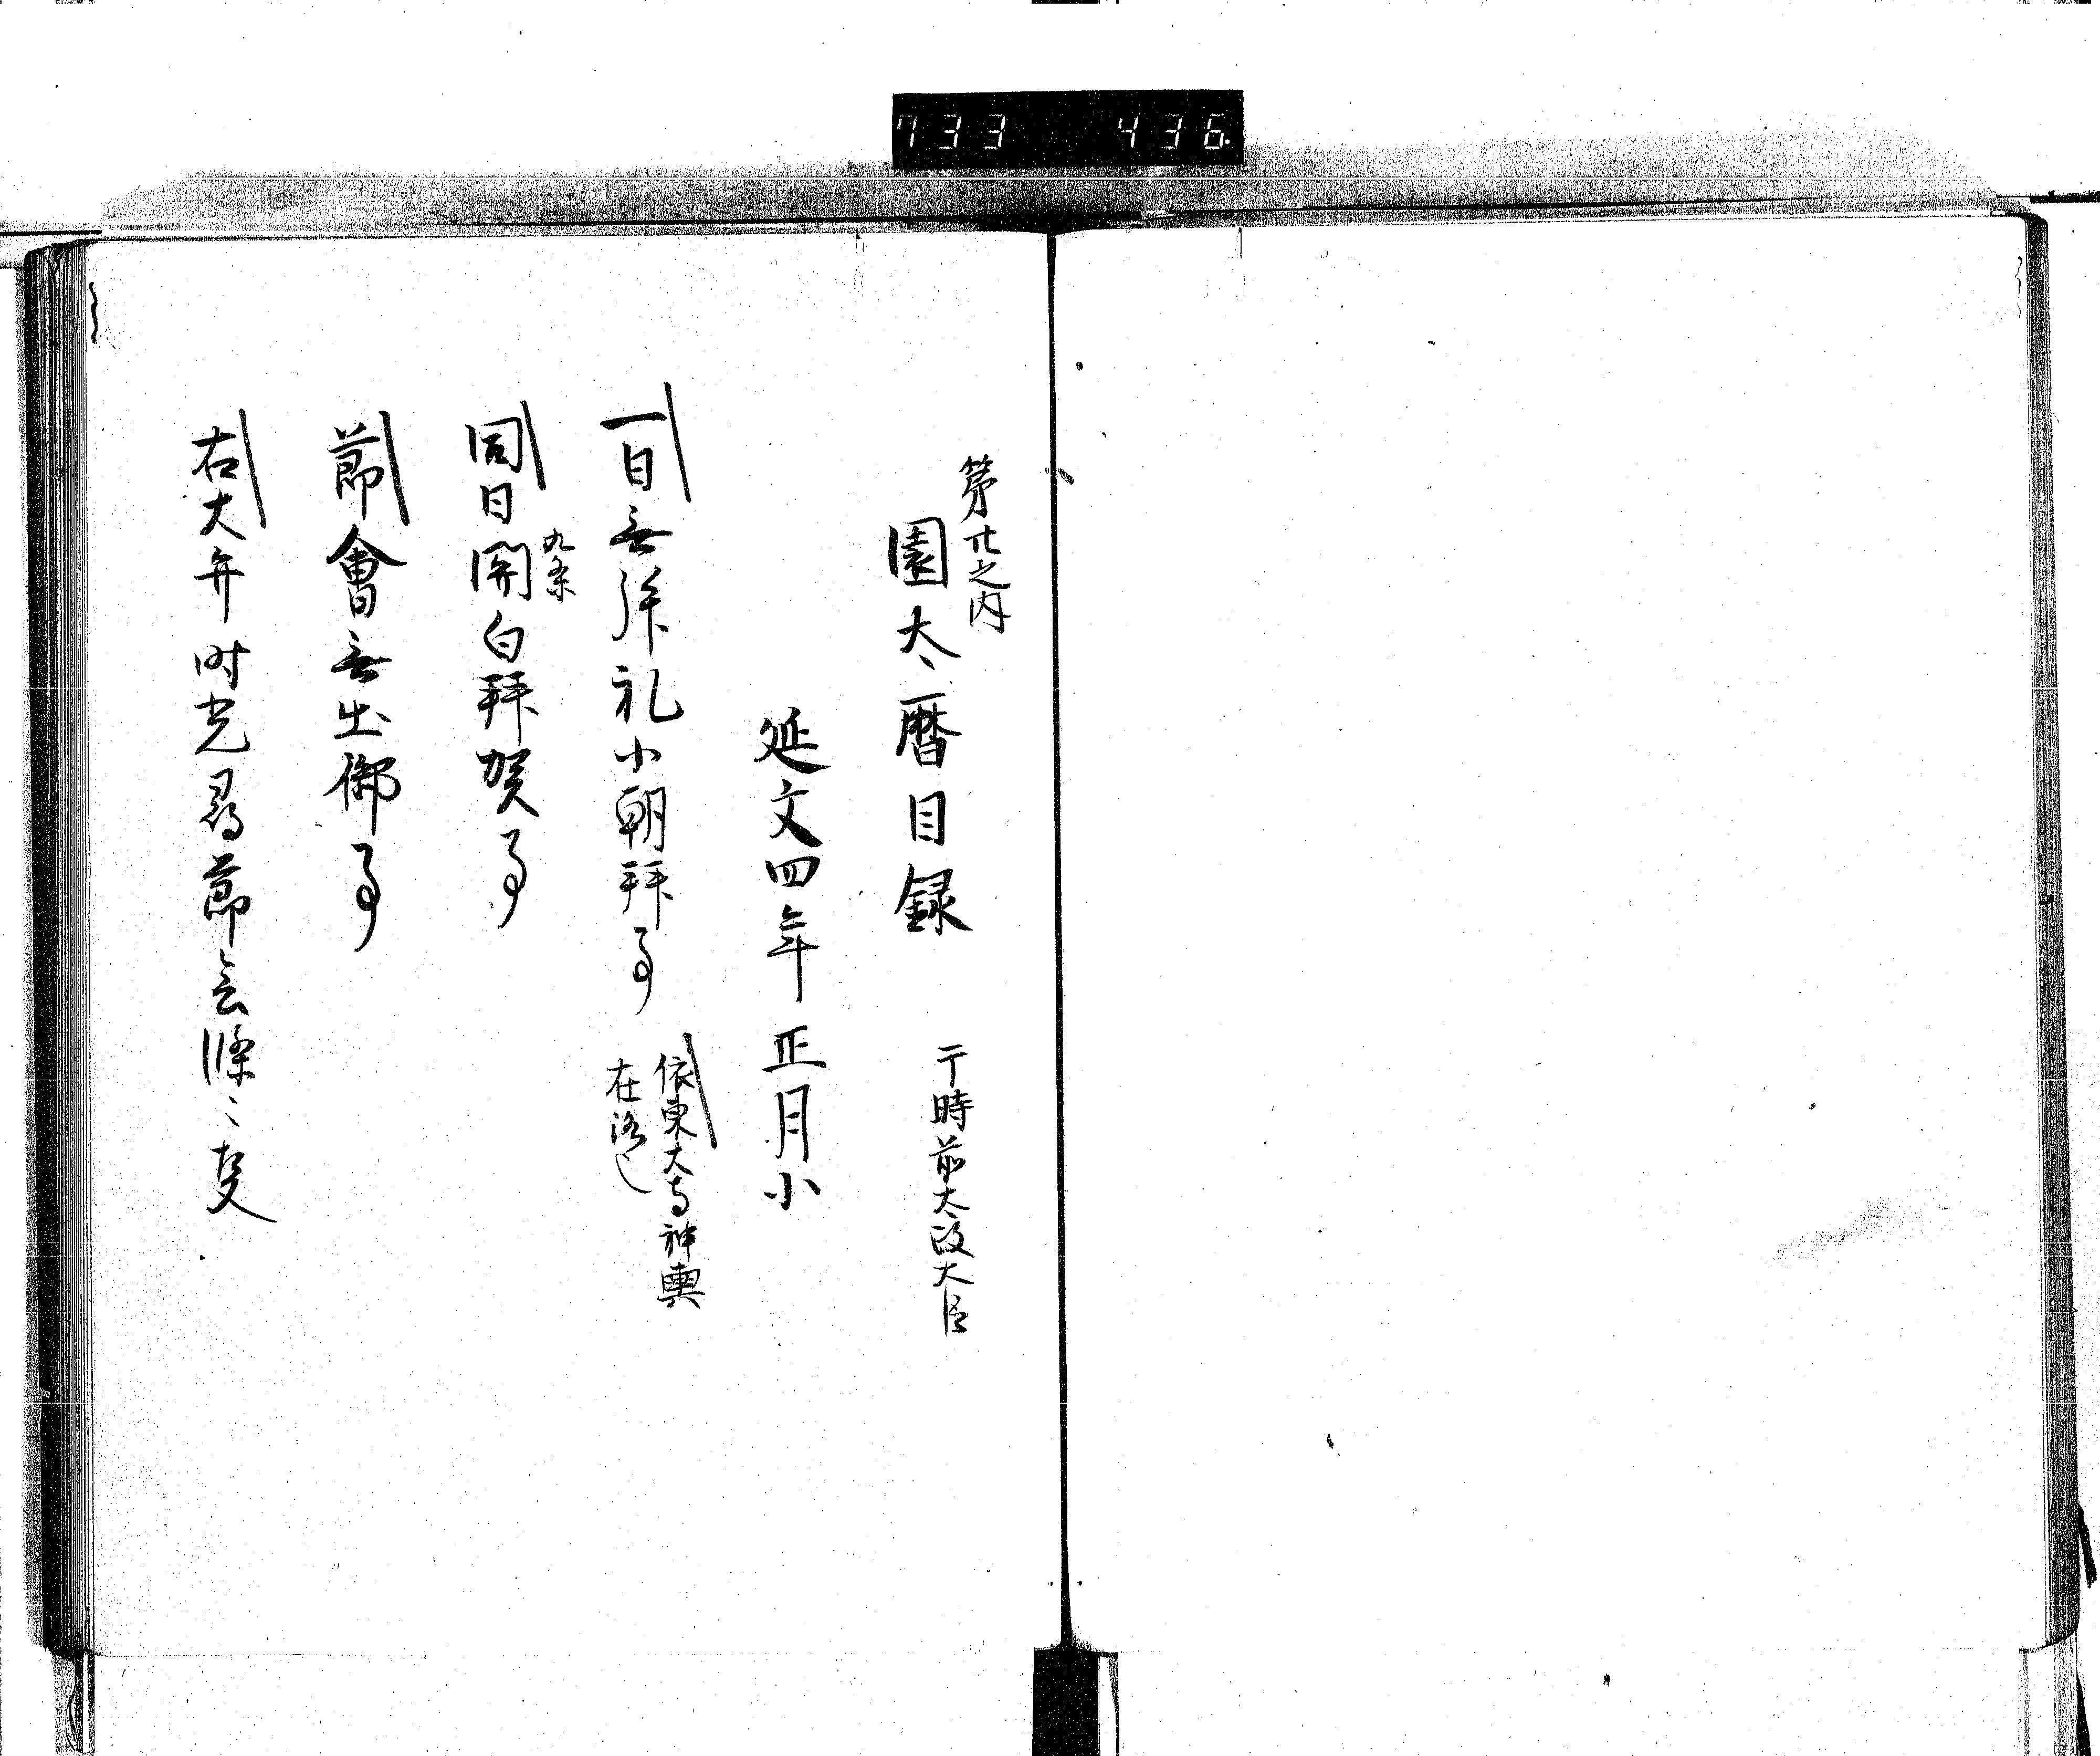 733 436
第廿之内
園太暦目録 于時前太政大臣
延文四年正月小
一日無拝礼小朝拝事 依東大寺神輿
在洛也
同日関白拝賀事
九条
節會無出御事
右大弁時光尋節会條々事